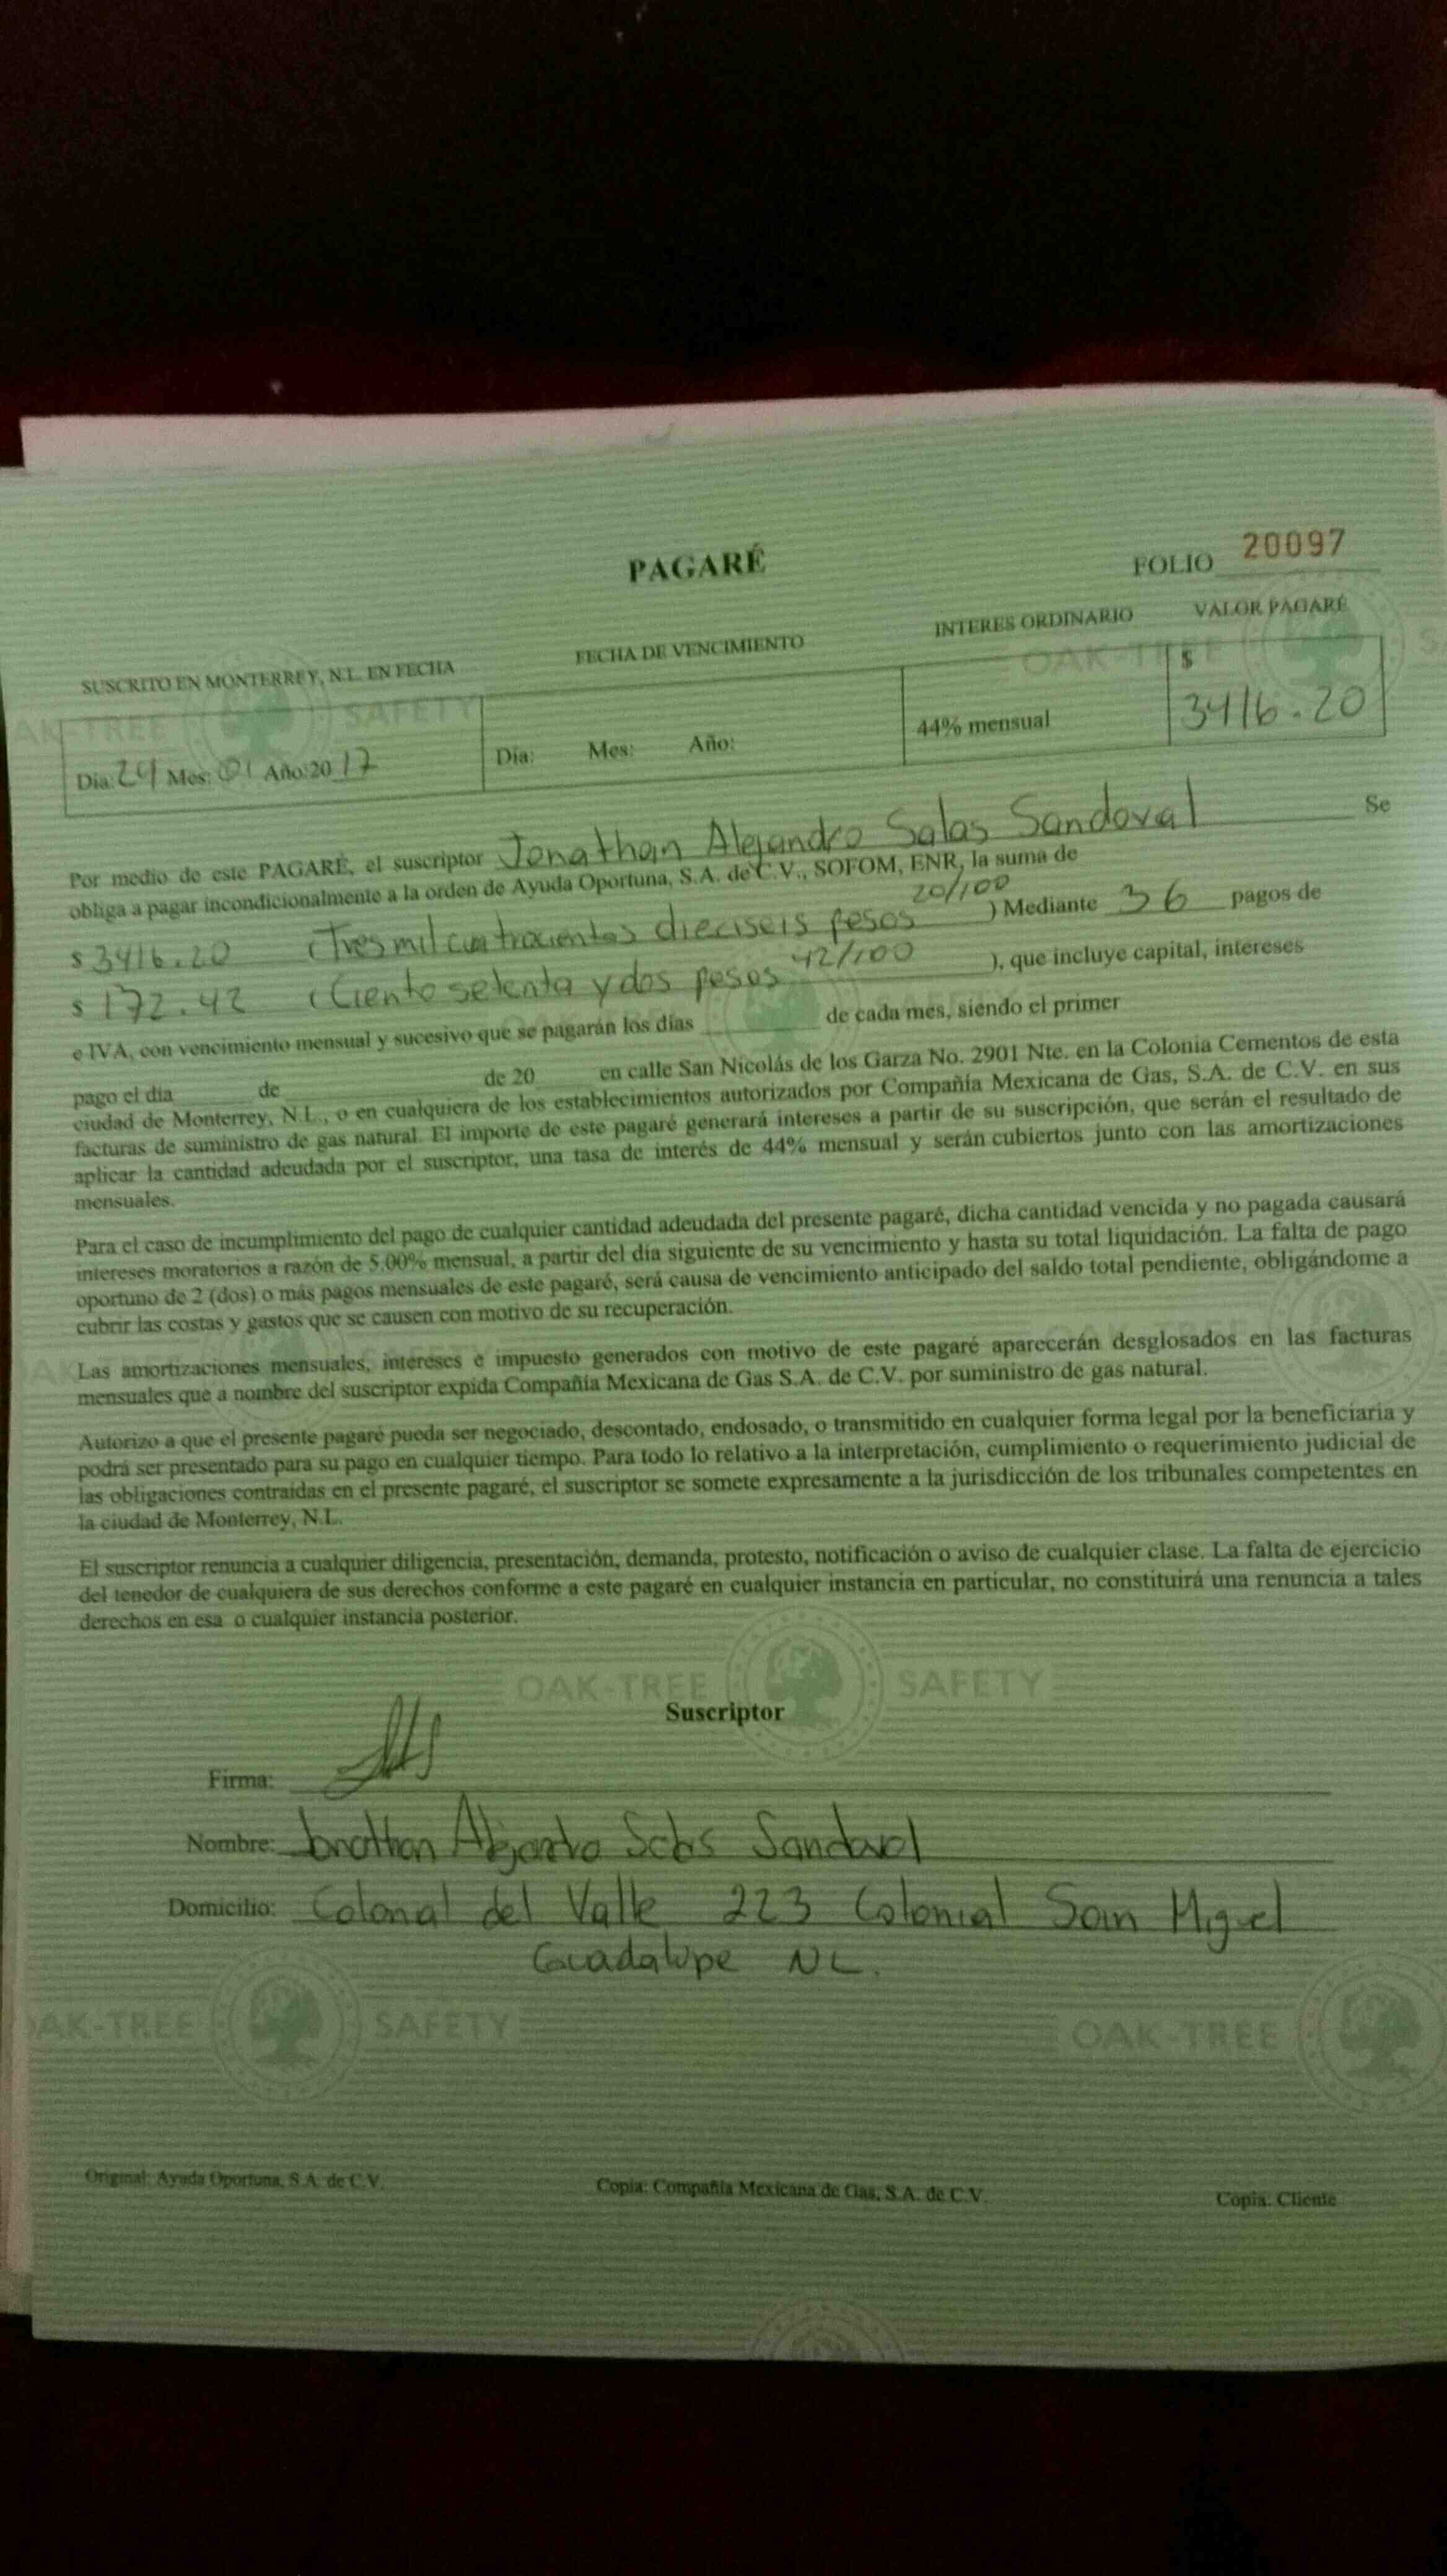 PAGARÉ
FOLIO 20097
SUSCRITO EN MONTERREY, N.L. EN FECHA
FECHA DE VENCIMIENTO
INTERES ORDINARIO
VALOR PAGARÉ
Día: 24 Mes: 01 Año:20 17
Día: Mes: Año:
44% mensual
$ 3416.20
Por medio de este PAGARÉ, el suscriptor Jonathan Alejandro Salas Sandoval Se
obliga a pagar incondicionalmente a la orden de Ayuda Oportuna, S.A. de C.V., SOFOM, ENR, la suma de
$ 3416.20 (Tres mil cuatrocientos dieciseis pesos 20/100 ) Mediante 36 pagos de
$ 172.42 (Ciento setenta y dos pesos 42/100 ), que incluye capital, intereses
e IVA, con vencimiento mensual y sucesivo que se pagarán los días de cada mes, siendo el primer
pago el día de de 20 en calle San Nicolás de los Garza No. 2901 Nte. en la Colonia Cementos de esta
ciudad de Monterrey, N.L., o en cualquiera de los establecimientos autorizados por Compañía Mexicana de Gas, S.A. de C.V. en sus
facturas de suministro de gas natural. El importe de este pagaré generará intereses a partir de su suscripción, que serán el resultado de
aplicar la cantidad adeudada por el suscriptor, una tasa de interés de 44% mensual y serán cubiertos junto con las amortizaciones
mensuales.
Para el caso de incumplimiento del pago de cualquier cantidad adeudada del presente pagaré, dicha cantidad vencida y no pagada causará
intereses moratorios a razón de 5.00% mensual, a partir del día siguiente de su vencimiento y hasta su total liquidación. La falta de pago
oportuno de 2 (dos) o más pagos mensuales de este pagaré, será causa de vencimiento anticipado del saldo total pendiente, obligándome a
cubrir las costas y gastos que se causen con motivo de su recuperación.
Las amortizaciones mensuales, intereses e impuesto generados con motivo de este pagaré aparecerán desglosados en las facturas
mensuales que a nombre del suscriptor expida Compañía Mexicana de Gas S.A. de C.V. por suministro de gas natural.
Autorizo a que el presente pagaré pueda ser negociado, descontado, endosado, o transmitido en cualquier forma legal por la beneficiaria y
podrá ser presentado para su pago en cualquier tiempo. Para todo lo relativo a la interpretación, cumplimiento o requerimiento judicial de
las obligaciones contraídas en el presente pagaré, el suscriptor se somete expresamente a la jurisdicción de los tribunales competentes en
la ciudad de Monterrey, N.L.
El suscriptor renuncia a cualquier diligencia, presentación, demanda, protesto, notificación o aviso de cualquier clase. La falta de ejercicio
del tenedor de cualquiera de sus derechos conforme a este pagaré en cualquier instancia en particular, no constituirá una renuncia a tales
derechos en esa o cualquier instancia posterior.
OAK-TREE SAFETY
Suscriptor
Firma:
Nombre: Jonathan Alejandro Salas Sandoval
Domicilio: Colonial del Valle 223 Colonial San Miguel
Guadalupe NL.
OAK-TREE SAFETY OAK-TREE
Original: Ayuda Oportuna, S.A. de C.V.
Copia: Compañía Mexicana de Gas, S.A. de C.V.
Copia: Cliente